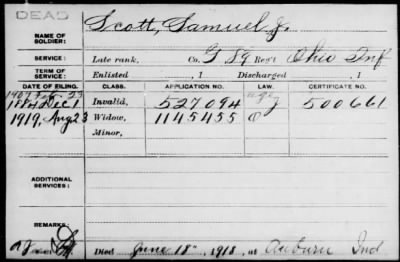 DEAD
NAME OF SOLDIER: Scott, Samuel J.
SERVICE: Late rank, Co. G 89 Reg't Ohio Inf
TERM OF SERVICE: Enlisted , 1 Discharged , 1
DATE OF FILING. CLASS. APPLICATION NO. LAW. CERTIFICATE NO.
1907 Feb 23
1884 Dec 1 Invalid, 527094 J 500661
1919, Aug 23 Widow, 1145455 O
Minor,
ADDITIONAL SERVICES:
REMARKS:
Died June 18", 1918, at Auburn Ind